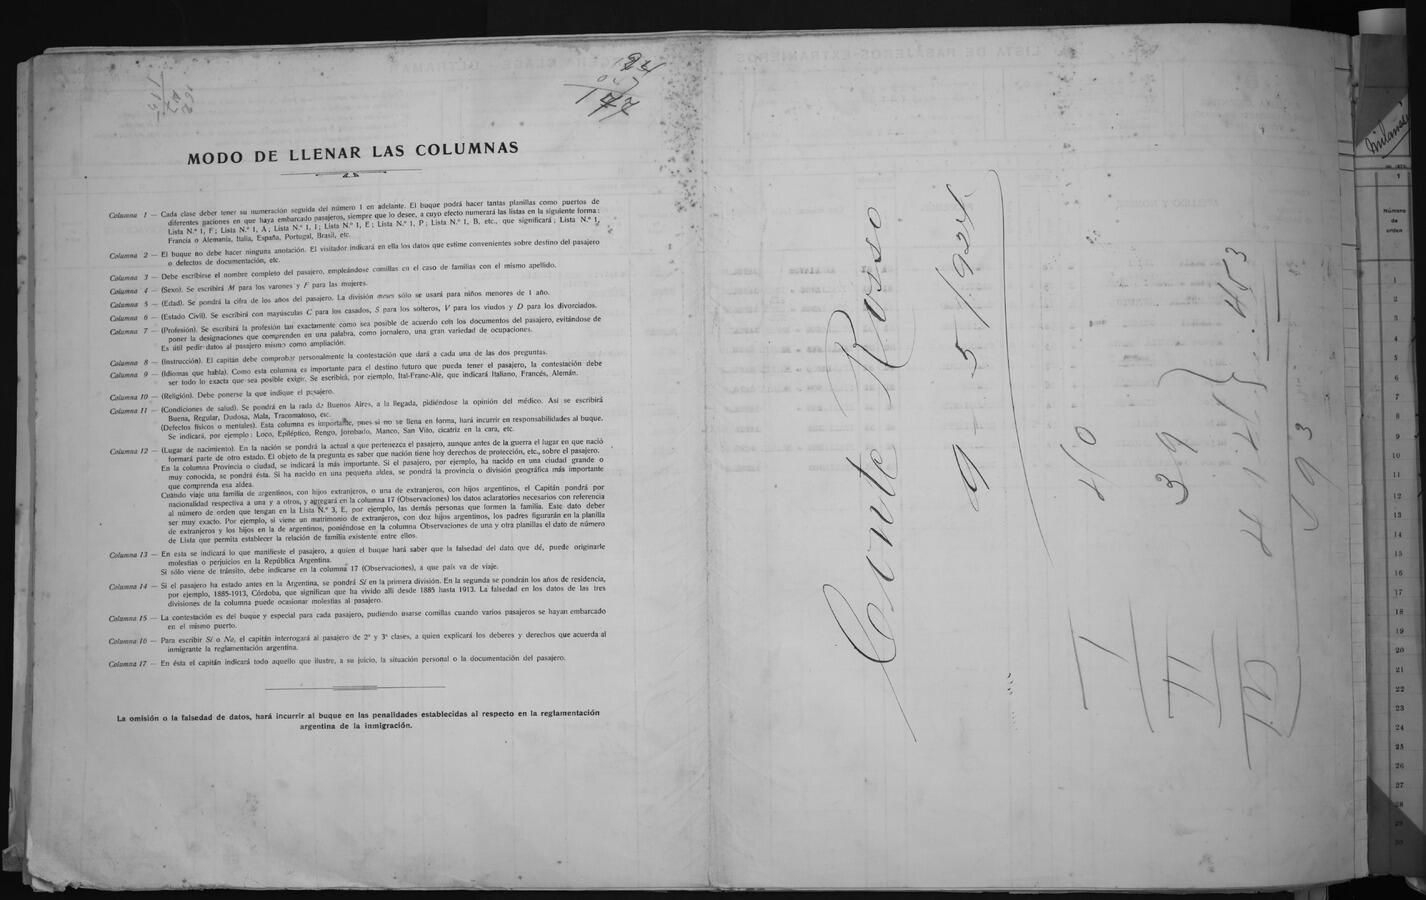 MODO DE LLENAR LAS COLUMNAS
Columna 1 — Cada clase deber tener su numeración seguida del número 1 en adelante. El buque podrá hacer tantas planillas como puertos de
diferentes naciones en que haya embarcado pasajeros, siempre que lo desee, a cuyo efecto numerará las listas en la siguiente forma:
Lista N.º 1, F; Lista N.º 1, A; Lista N.º 1, I; Lista N.º 1, E; Lista N.º 1, P; Lista N.º 1, B, etc., que significará; Lista N.º 1,
Francia o Alemania, Italia, España, Portugal, Brasil, etc.
Columna 2 — El buque no debe hacer ninguna anotación. El visitador indicará en ella los datos que estime convenientes sobre destino del pasajero
o defectos de documentación, etc.
Columna 3 — Debe escribirse el nombre completo del pasajero, empleándose comillas en el caso de familias con el mismo apellido.
Columna 4 — (Sexo). Se escribirá M para los varones y F para las mujeres.
Columna 5 — (Edad). Se pondrá la cifra de los años del pasajero. La división meses sólo se usará para niños menores de 1 año.
Columna 6 — (Estado Civil). Se escribirá con mayúsculas C para los casados, S para los solteros, V para los viudos y D para los divorciados.
Columna 7 — (Profesión). Se escribirá la profesión tan exactamente como sea posible de acuerdo con los documentos del pasajero, evitándose de
poner la designaciones que comprenden en una palabra, como jornalero, una gran variedad de ocupaciones.
Es útil pedir datos al pasajero mismo como ampliación.
Columna 8 — (Instrucción). El capitán debe comprobar personalmente la contestación que dará a cada una de las dos preguntas.
Columna 9 — (Idiomas que habla). Como esta columna es importante para el destino futuro que pueda tener el pasajero, la contestación debe
ser todo lo exacta que sea posible exigir. Se escribirá, por ejemplo, Ital-Franc-Ale, que indicará Italiano, Francés, Alemán.
Columna 10 — (Religión). Debe ponerse la que indique el pasajero.
Columna 11 — (Condiciones de salud). Se pondrá en la rada de Buenos Aires, a la llegada, pidiéndose la opinión del médico. Así se escribirá
Buena, Regular, Dudosa, Mala, Tracomatoso, etc.
(Defectos físicos o mentales). Esta columna es importante, pues si no se llena en forma, hará incurrir en responsabilidades al buque.
Se indicará, por ejemplo: Loco, Epiléptico, Rengo, Jorobado, Manco, San Vito, cicatriz en la cara, etc.
Columna 12 — (Lugar de nacimiento). En la nación se pondrá la actual a que pertenezca el pasajero, aunque antes de la guerra el lugar en que nació
formará parte de otro estado. El objeto de la pregunta es saber que nación tiene hoy derechos de protección, etc., sobre el pasajero.
En la columna Provincia o ciudad, se indicará la más importante. Si el pasajero, por ejemplo, ha nacido en una ciudad grande o
muy conocida, se pondrá ésta. Si ha nacido en una pequeña aldea, se pondrá la provincia o división geográfica más importante
que comprenda esa aldea.
Cuando viaje una familia de argentinos, con hijos extranjeros, o una de extranjeros, con hijos argentinos, el Capitán pondrá por
nacionalidad respectiva a una y a otros, y agregará en la columna 17 (Observaciones) los datos aclaratorios necesarios con referencia
al número de orden que tengan en la Lista N.º 3, E, por ejemplo, las demás personas que formen la familia. Este dato deber
ser muy exacto. Por ejemplo, si viene un matrimonio de extranjeros, con doz hijos argentinos, los padres figurarán en la planilla
de extranjeros y los hijos en la de argentinos, poniéndose en la columna Observaciones de una y otra planillas el dato de número
de Lista que permita establecer la relación de familia existente entre ellos.
Columna 13 — En esta se indicará lo que manifieste el pasajero, a quien el buque hará saber que la falsedad del dato que dé, puede originarle
molestias o perjuicios en la República Argentina.
Si sólo viene de tránsito, debe indicarse en la columna 17 (Observaciones), a que país va de viaje.
Columna 14 — Si el pasajero ha estado antes en la Argentina, se pondrá Sí en la primera división. En la segunda se pondrán los años de residencia,
por ejemplo, 1885-1913, Córdoba, que significan que ha vivido allí desde 1885 hasta 1913. La falsedad en los datos de las tres
divisiones de la columna puede ocasionar molestias al pasajero.
Columna 15 — La contestación es del buque y especial para cada pasajero, pudiendo usarse comillas cuando varios pasajeros se hayan embarcado
en el mismo puerto.
Columna 16 — Para escribir Sí o No, el capitán interrogará al pasajero de 2ª y 3ª clases, a quien explicará los deberes y derechos que acuerda al
inmigrante la reglamentación argentina.
Columna 17 — En ésta el capitán indicará todo aquello que ilustre, a su juicio, la situación personal o la documentación del pasajero.
La omisión o la falsedad de datos, hará incurrir al buque en las penalidades establecidas al respecto en la reglamentación
argentina de la inmigración.
Conte Rosso
9 - 5 1924
I 40
II 39
453
Número
de
orden
1
2
3
4
5
6
7
8
9
10
11
12
13
14
15
16
17
18
19
20
21
22
23
24
25
26
27
28
29
30